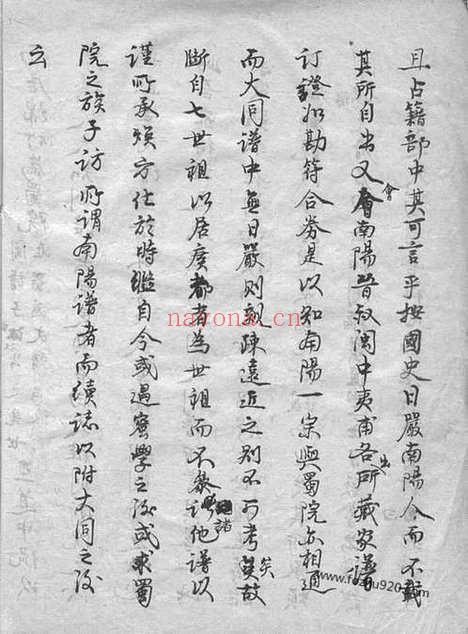 且占籍部中其可言乎按國史日嚴南陽人而不載
其所自出又會南陽晉叔閩中夷甫各出所藏家譜
訂證如勘符合券是以知南陽一宗與蜀院亦相通
而大同譜中無日嚴則親疎遠近之別不可考矣故
斷自七世祖以居廣都者為世祖而不參諸他譜以
謹所承煥方仕於時繼自今或遇察學之後或求蜀
院之族子訪所謂南陽譜者而續誌以附大同之後
云
nayona.cn
www.foxu920.com